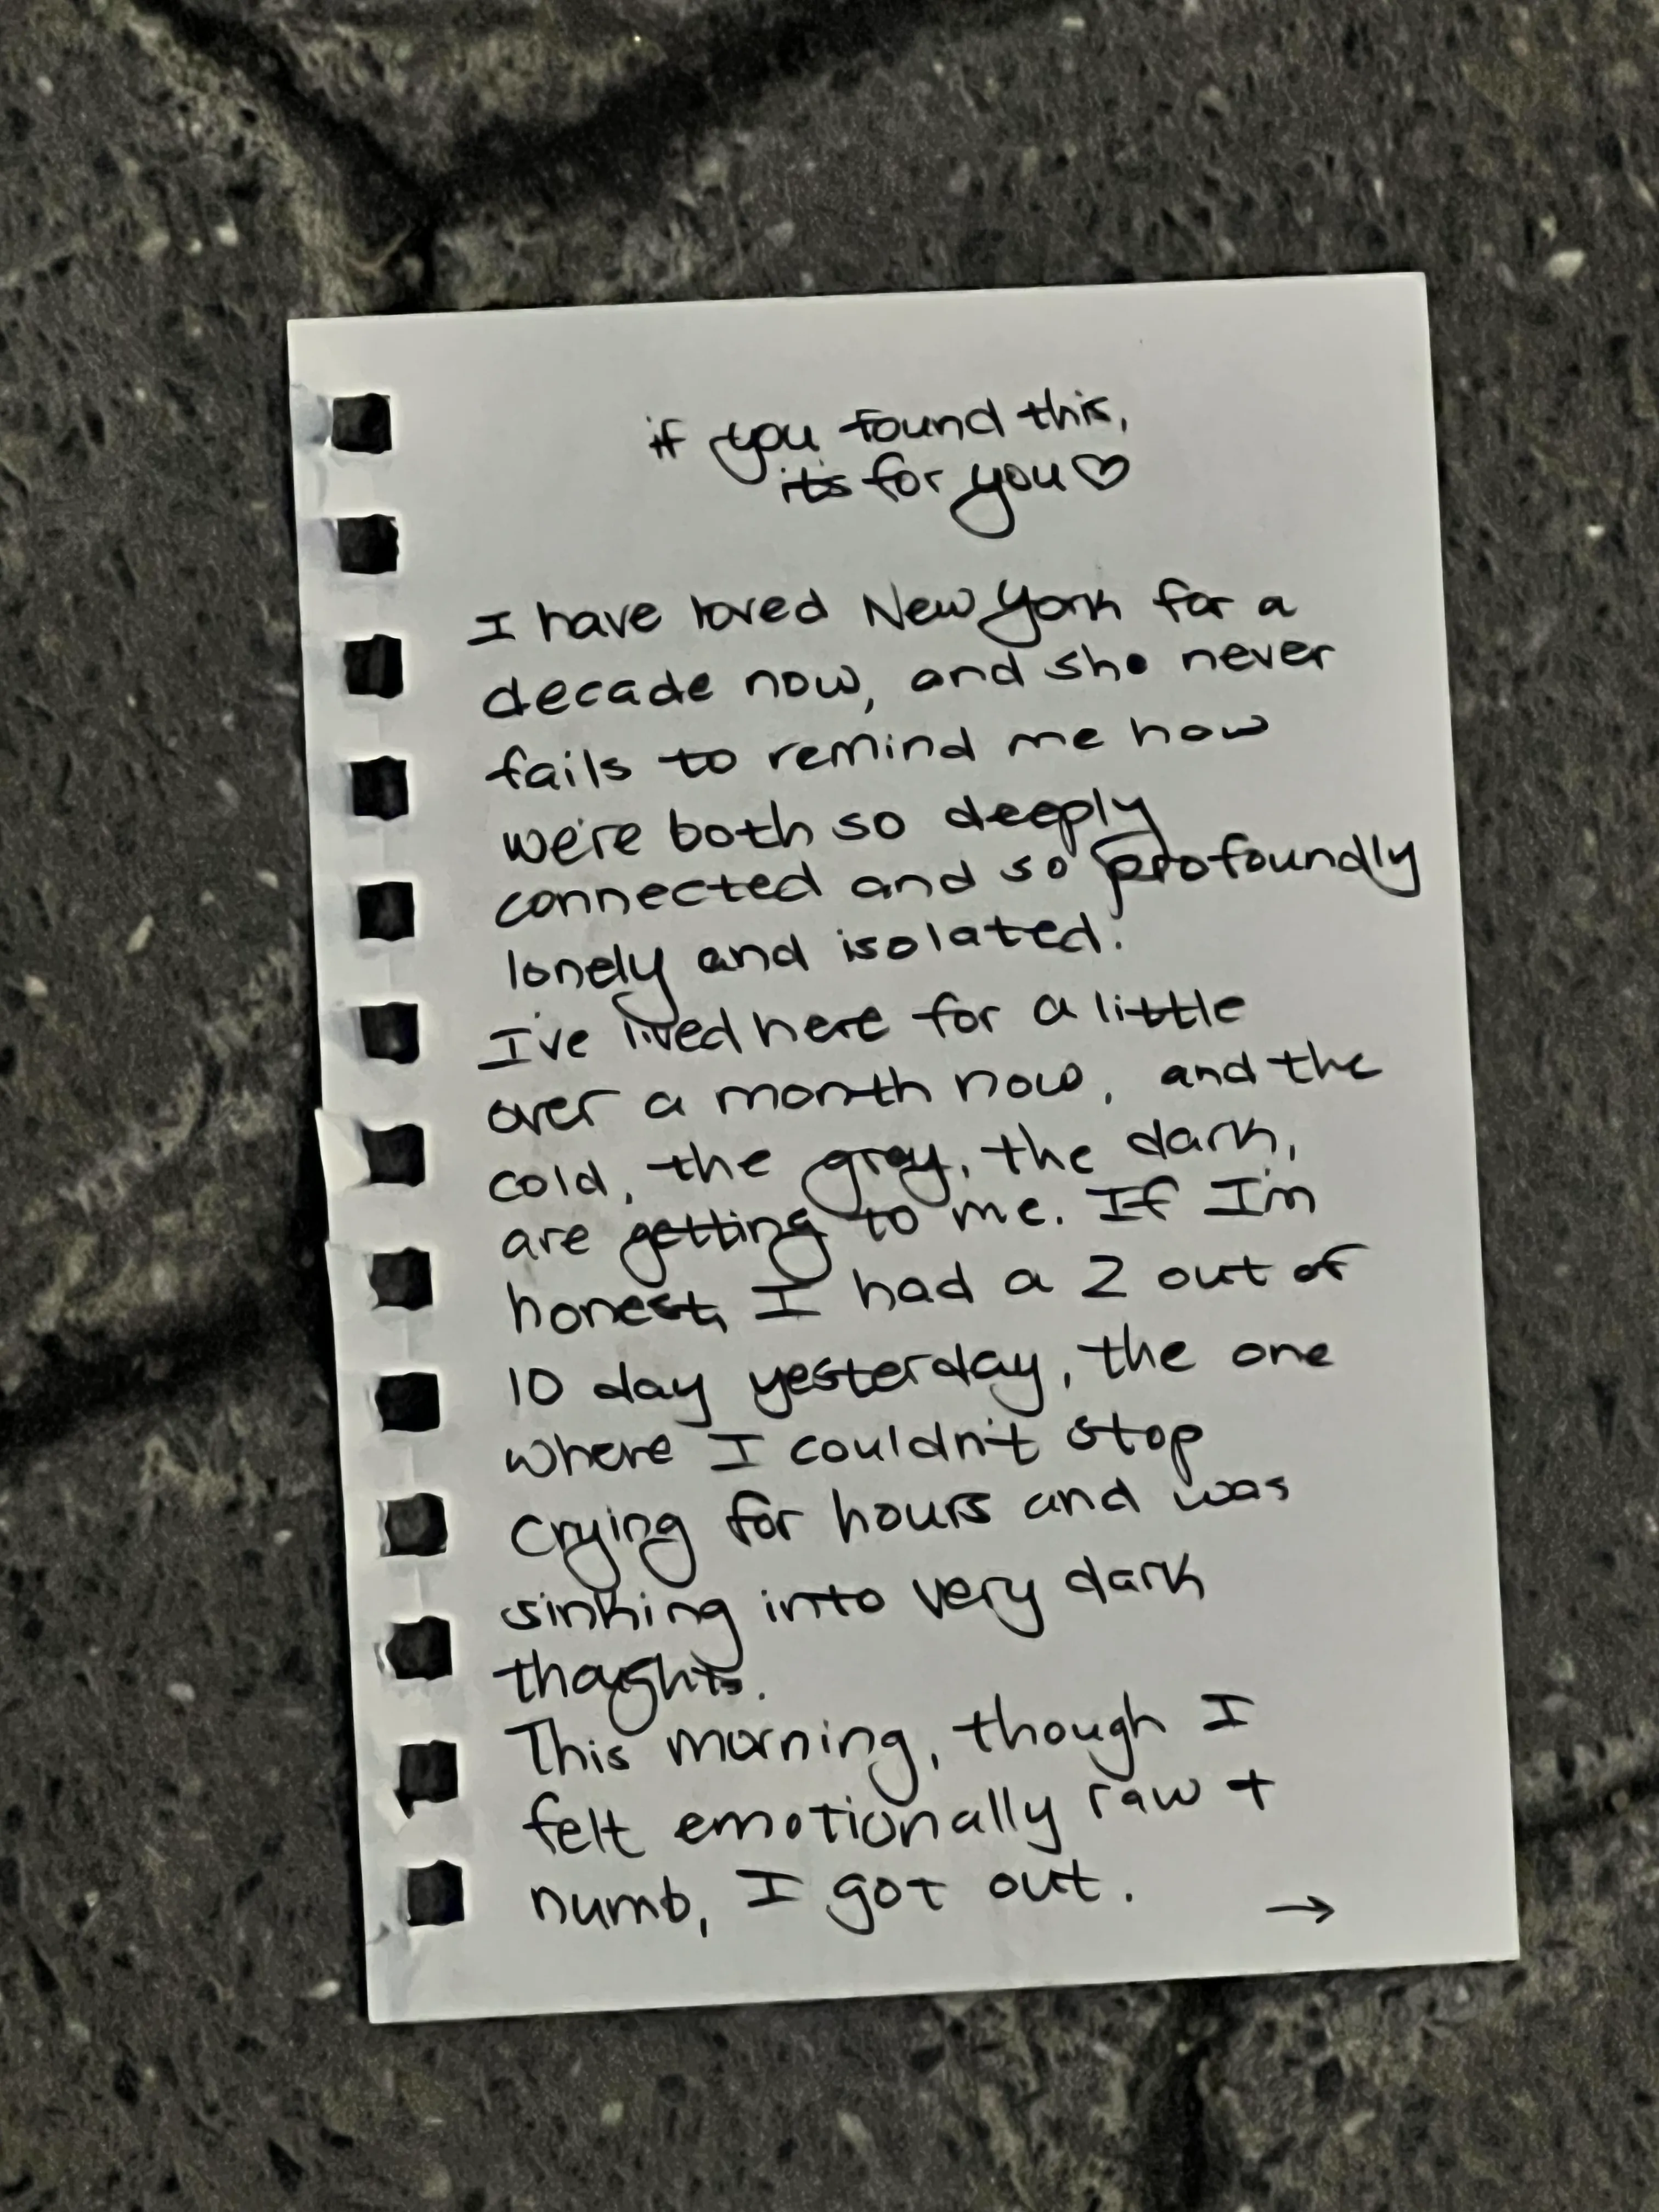 if you found this,
it's for you♡
I have loved New York for a
decade now, and she never
fails to remind me how
we're both so deeply
connected and so profoundly
lonely and isolated.
I've lived here for a little
over a month now, and the
cold, the gray, the dark,
are getting to me. If I'm
honest, I had a 2 out of
10 day yesterday, the one
where I couldn't stop
crying for hours and was
sinking into very dark
thoughts.
This morning, though I
felt emotionally raw +
numb, I got out. →